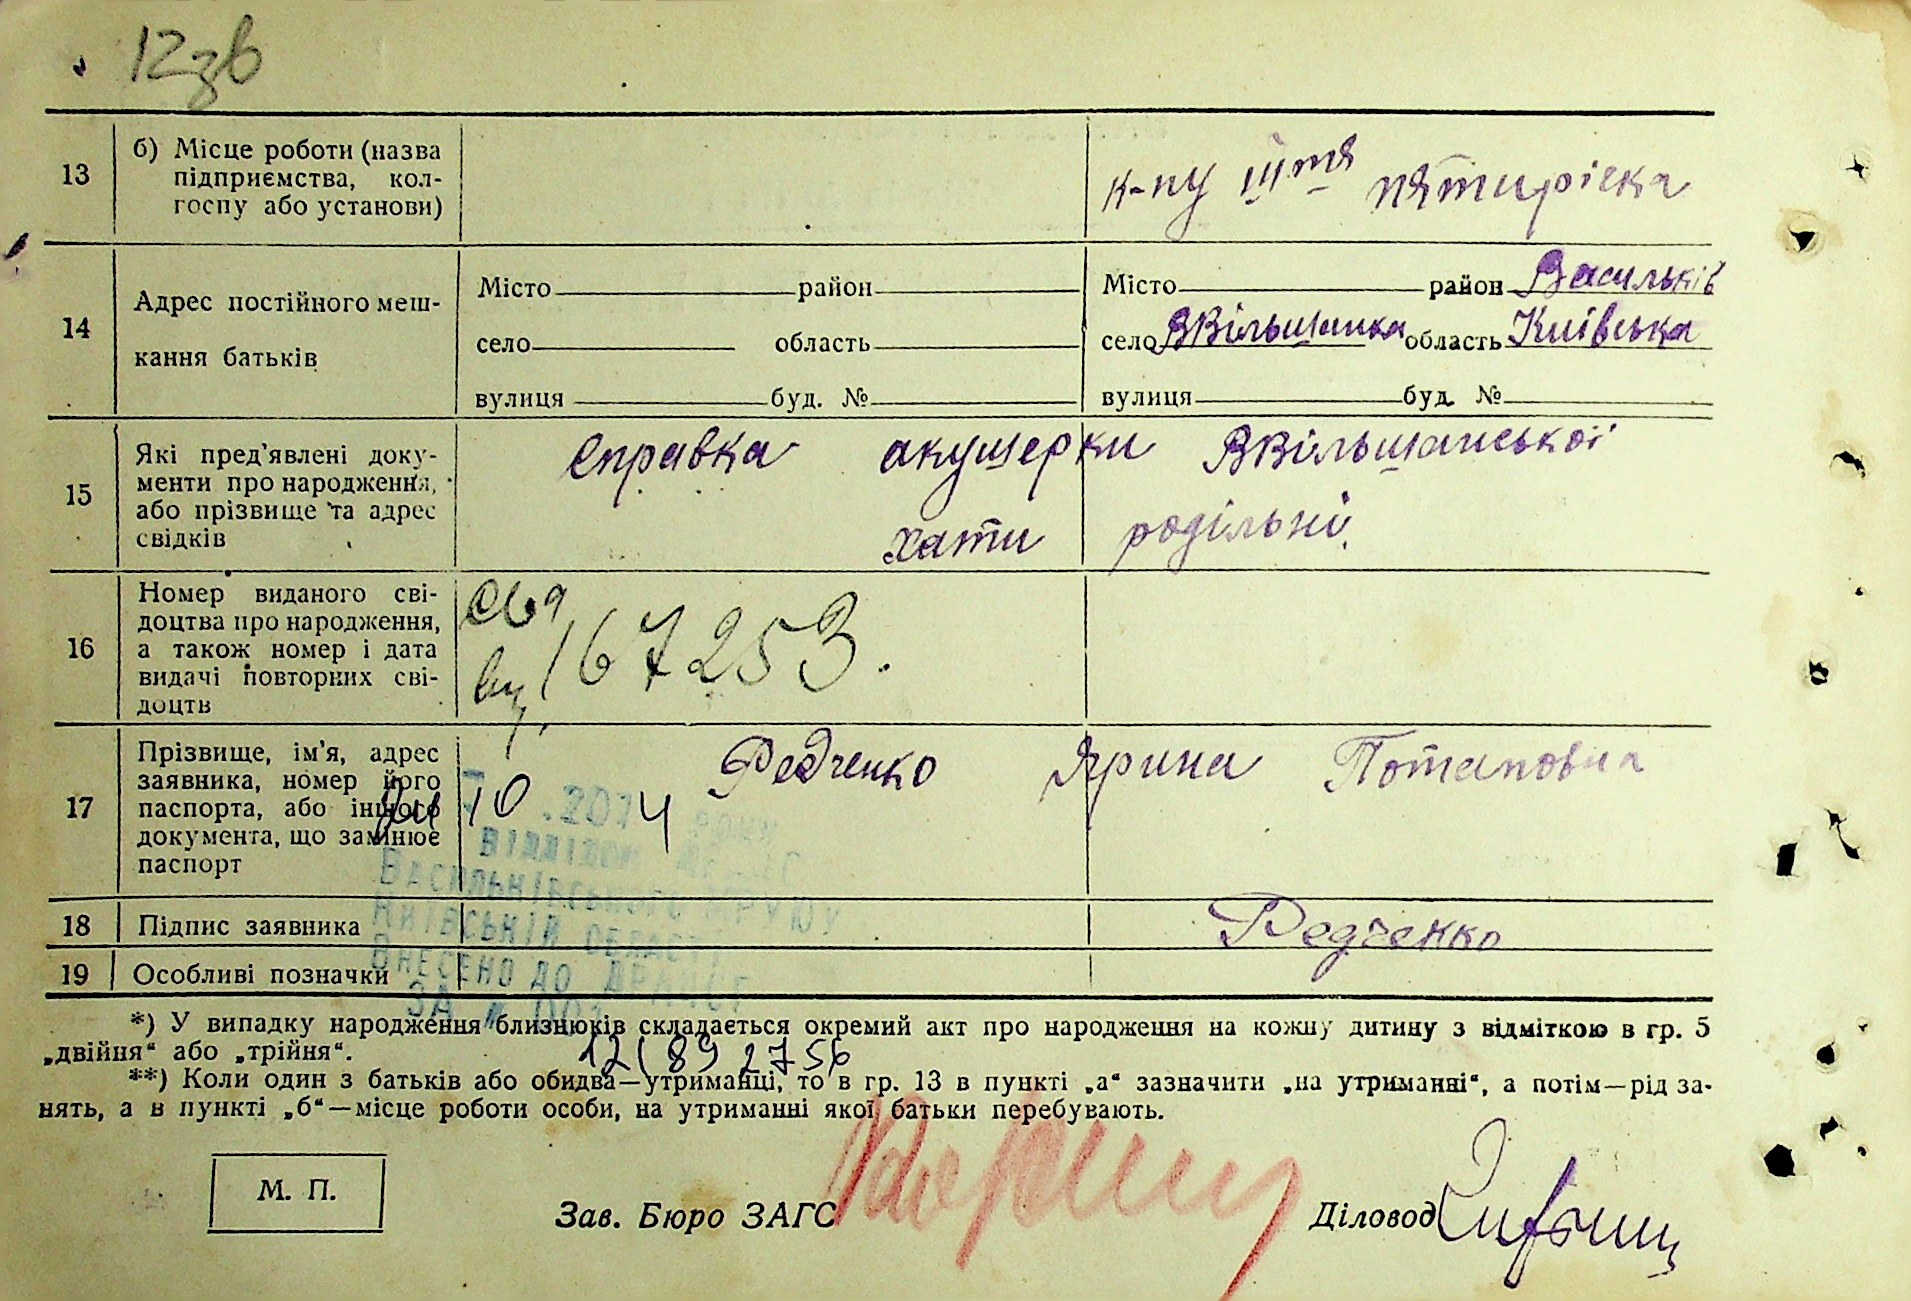 12зв
13 б) Місце роботи (назва
підприємства, кол-
госпу або установи)
к-пу ІІІтя пятирієка
14 Адрес постійного меш-
кання батьків
Місто район
село область
вулиця буд. №
Місто район Васильків
село ВВільшанка область Київська
вулиця буд. №
15 Які пред'явлені доку-
менти про народження,
або прізвище та адрес
свідків
справка акушерки ВВільшанської
хати родільні
16 Номер виданого сві-
доцтва про народження,
а також номер і дата
видачі повторних сві-
доцтв
167253.
17 Прізвище, ім'я, адрес
заявника, номер його
паспорта, або іншого
документа, що замінює
паспорт
Редченко Ярина Потаповна
10 .201 4 року
Відділом
Васильківського МРУЮ
Київській області
Внесено до ДРАЦСГ
за №
18 Підпис заявника
Редченко
19 Особливі позначки
*) У випадку народження близнюків складається окремий акт про народження на кожну дитину з відміткою в гр. 5
„двійня“ або „трійня“.
**) Коли один з батьків або обидва—утриманці, то в гр. 13 в пункті „а“ зазначити „на утриманні“, а потім—рід за-
нять, а в пункті „б“—місце роботи особи, на утриманні якої батьки перебувають.
М. П.
Зав. Бюро ЗАГС
Діловод